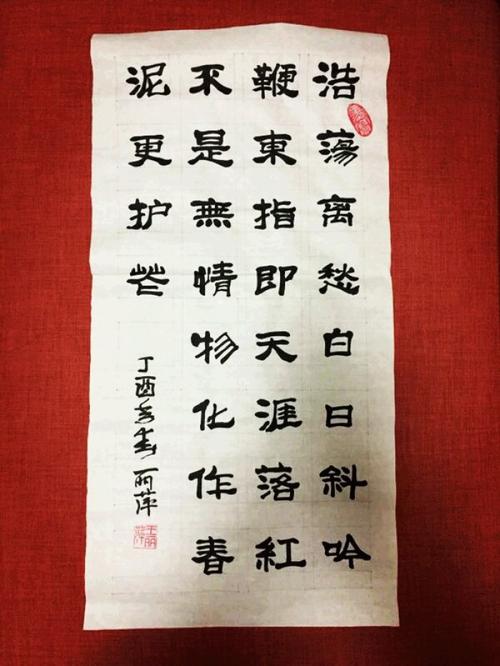 浩荡离愁白日斜吟
鞭東指即天涯落紅
不是無情物化作春
泥更护花
丁酉冬書丽萍